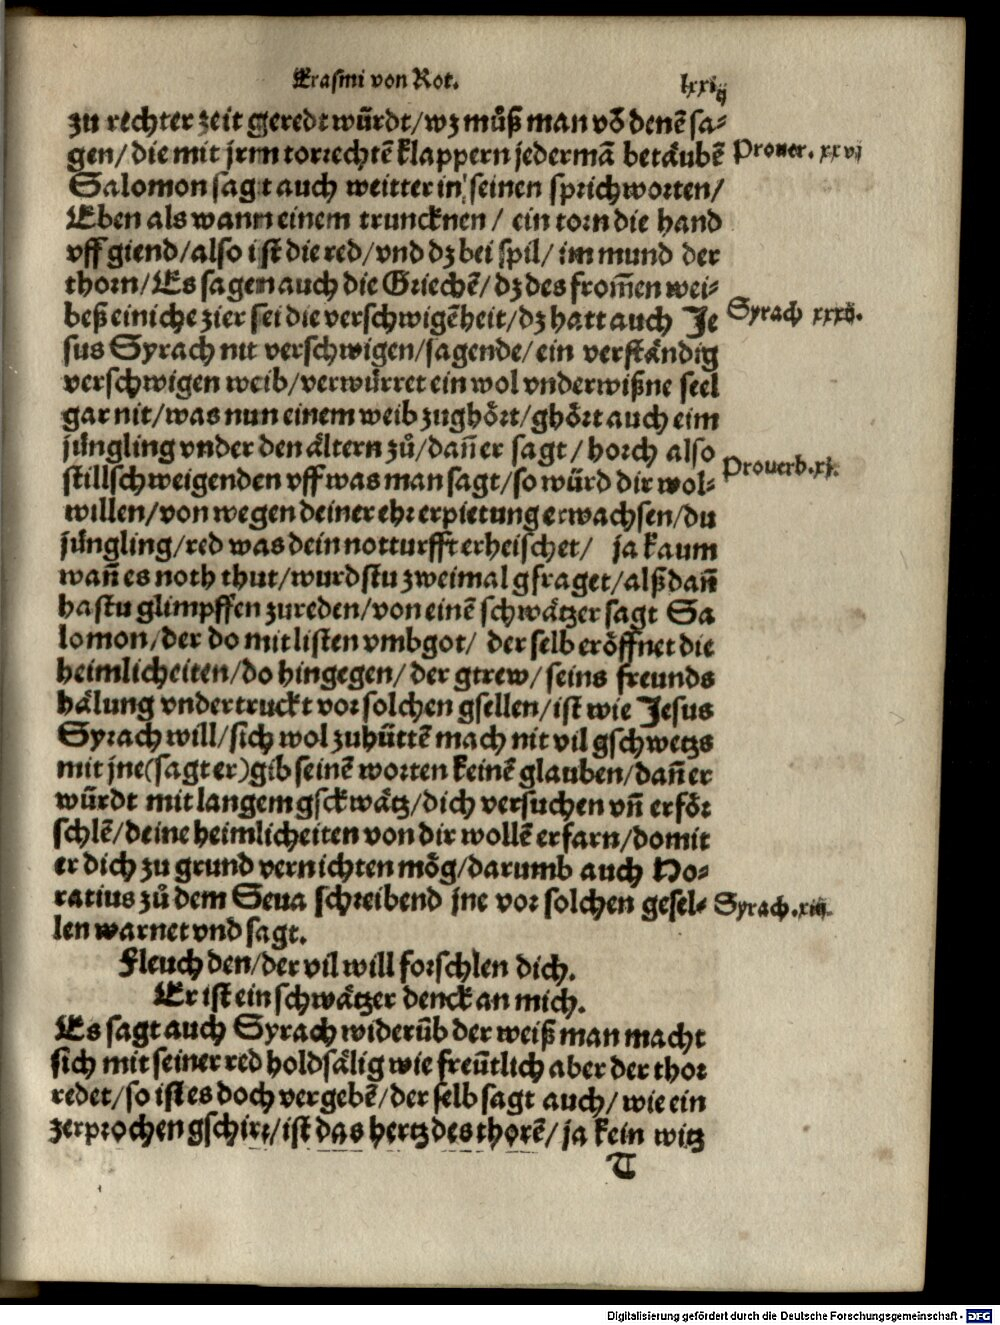 Erasmi von Rot. lxxiij
zu rechter zeit geredt würdt/wz můß man võ denẽ sa-
gen/die mit jrm torrechtẽ klappern jedermã betäubẽ
Prouer. xxvj
Salomon sagt auch weitter in seinen sprichworten/
Eben als wann einem trunck̄nen/ ein torn die hand
vff giend/also ist die red/vnd dz bei spil/im mund der
thorn/Es sagen auch die Griechẽ/dz des from̃en wei-
beß einiche zier sei die verschwigẽheit/dz hatt auch Je
Syrach xxxvj.
sus Syrach nit verschwigen/sagende/ein verständig
verschwigen weib/verwürret ein wol vnderwißne seel
gar nit/was nun einem weib zughört/ghört auch eim
jüngling vnder den ältern zů/dañ er sagt/horch also
stillschweigenden vff was man sagt/so würd dir wol-
Prouerb.xj.
willen/von wegen deiner ehrerpietung erwachsen/du
jüngling/red was dein notturfft erheischet/ ja kaum
wañ es noth thut/wurdstu zweimal gfraget/alßdañ
hastu glimpffen zureden/von einẽ schwätzer sagt Sa
lomon/der do mit listen vmbgot/ der selb eröffnet die
heimlicheiten/do hingegen/der gtrew/seins freunds
hälung vndertruckt vor solchen gsellen/ist wie Jesus
Syrach will/sich wol zuhüttẽ mach nit vil gschwetzs
mit jne(sagt er)gib seinẽ worten keinẽ glauben/dañ er
würdt mit langem gsckwätz/dich versuchen vñ erför
schlẽ/deine heimlicheiten von dir wollẽ erfarn/domit
er dich zu grund vernichten mög/darumb auch Ho-
ratius zů dem Seua schreibend jne vor solchen gesel-
Syrach.xiij.
len warnet vnd sagt.
Fleuch den/der vil will forschlen dich.
Er ist ein schwätzer denck an mich.
Es sagt auch Syrach widerüb der weiß man macht
sich mit seiner red holdsälig wie freütlich aber der thor
redet/so ist es doch vergebẽ/der selb sagt auch/wie ein
zerprochen gschirr/ist das hertz des thorẽ/ja kein witz
T
Digitalisierung gefördert durch die Deutsche Forschungsgemeinschaft - DFG